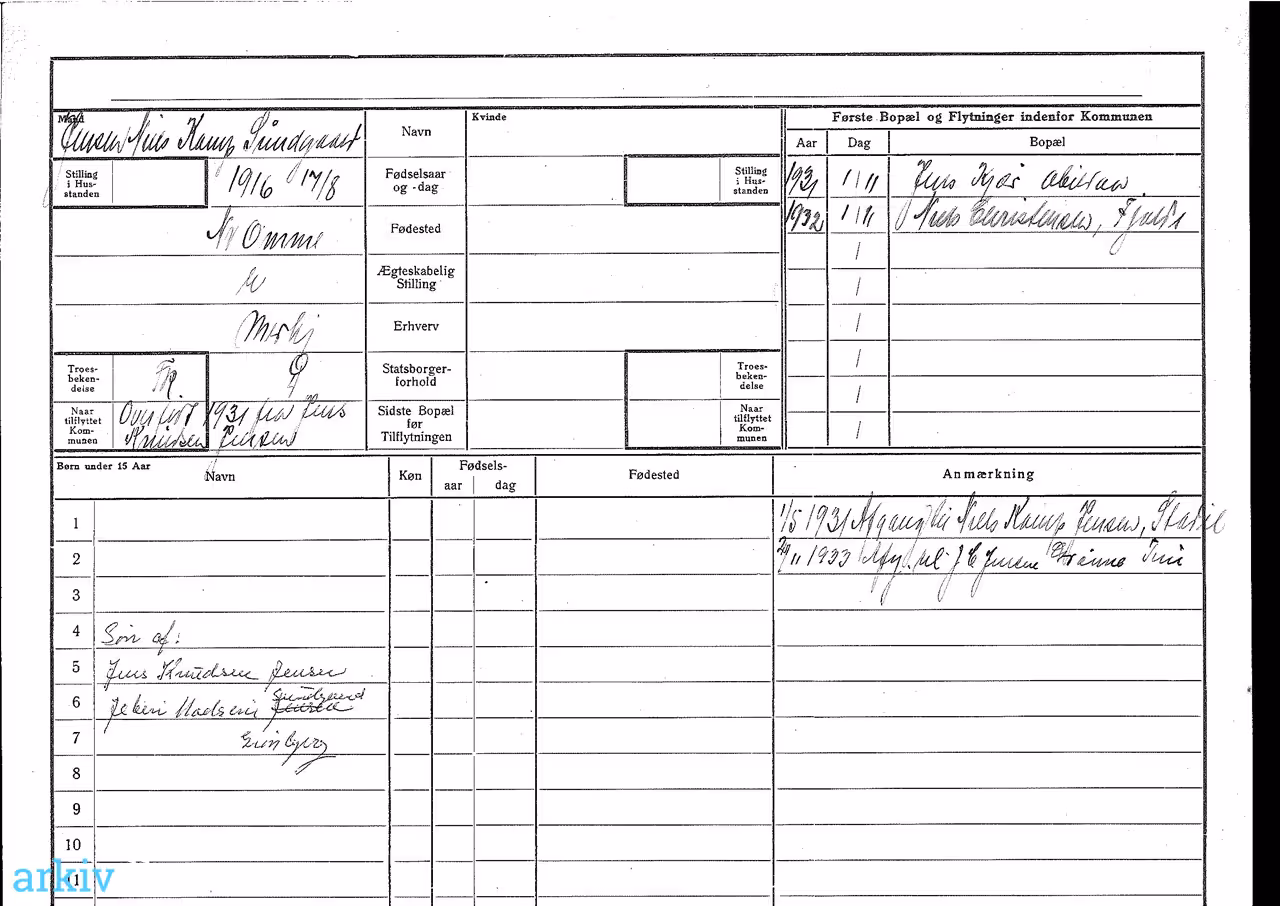 Mand
Jensen Niels Kamp Sundgaard
Navn
Kvinde
Første Bopæl og Flytninger indenfor Kommunen
Aar
Dag
Bopæl
Stilling i Hus-standen
1916 17/8
Fødselsaar og -dag
Stilling i Hus-standen
1931 1/11 Jens Kjær
1932 1/11 Niels Christensen,
Nr Omme
Fødested
U
Ægteskabelig Stilling
Erhverv
Troes-beken-delse
Fk.
D
Statsborger-forhold
Troes-beken-delse
Naar tilflyttet Kom-munen
Overført 1931 fra Jens
Knudsen Jensen
Sidste Bopæl før Tilflytningen
Naar tilflyttet Kom-munen
Børn under 15 Aar
Navn
Køn
Fødsels-
aar
dag
Fødested
Anmærkning
1
1/5 1931 Afgang til Niels Kamp Jensen, Stadil
2
29/11 1933 Afg. til J C Jensen Tim
3
4 Søn af:
5 Jens Knudsen Jensen
6 Madsen Jensen Sundgaard
7
8
9
10
11
arkiv